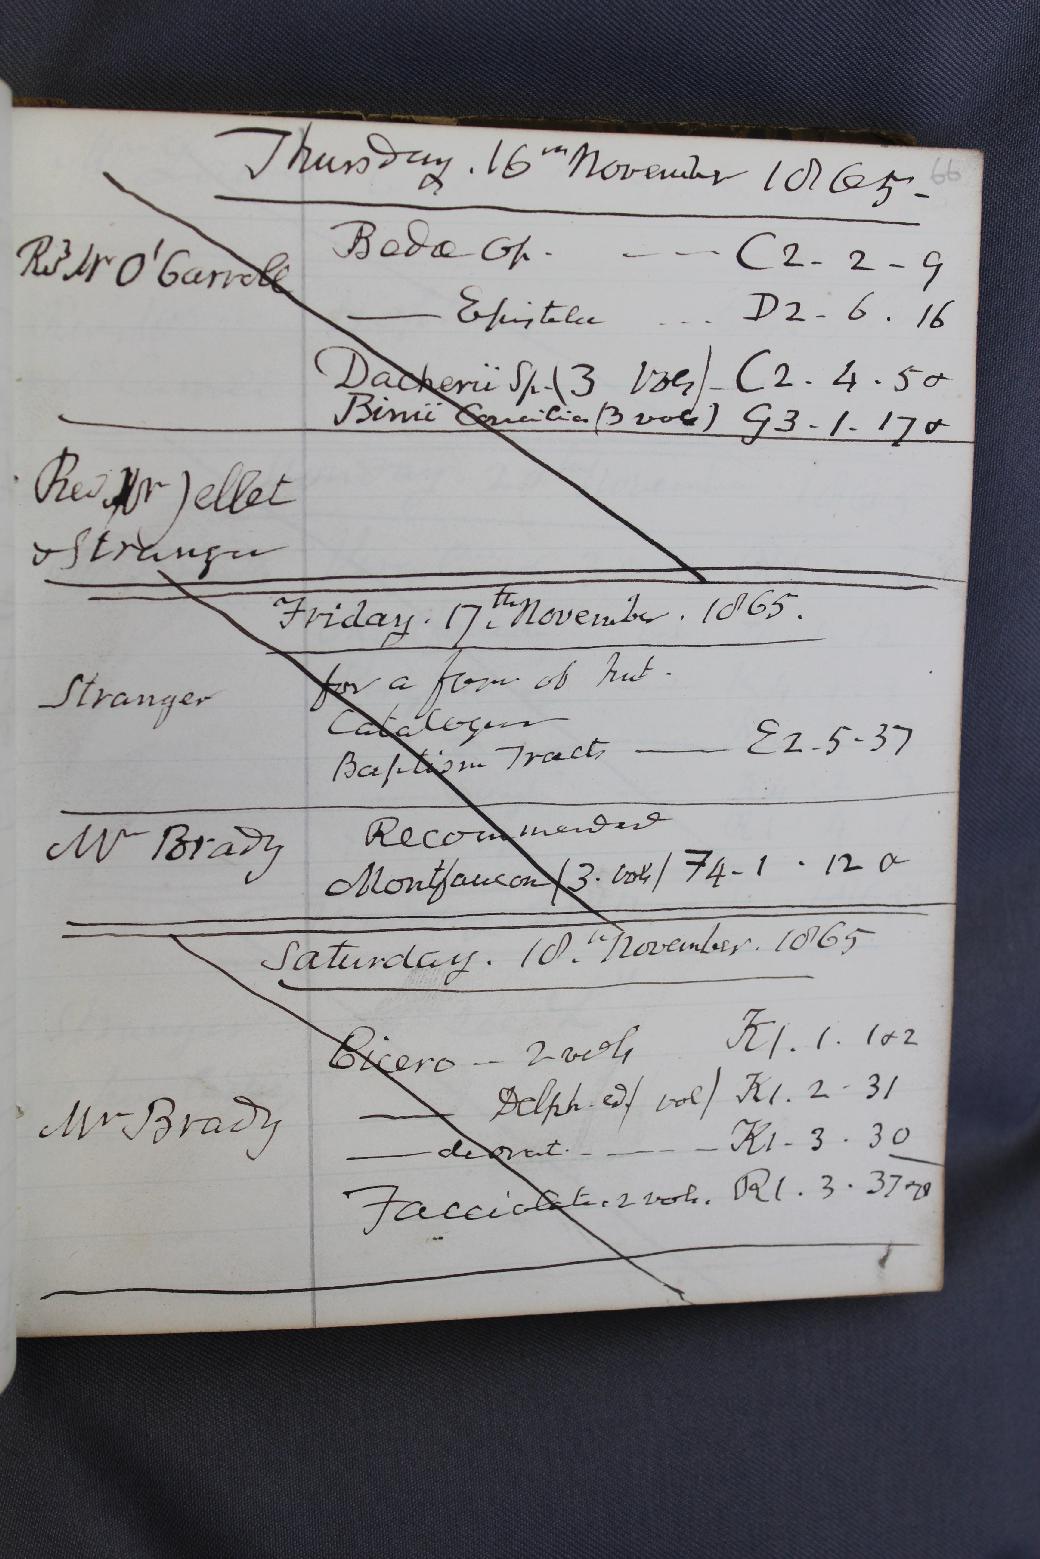 66
Thursday. 16th November 1865-
Revd Mr O'Garroll Bedae Op. --- C2-2-9
— Epistolae ... D2-6.16
Dacherii Sp. (3 vols) - C2.4.5&
Binii Concilia (3 vols) G3-1.17&
Rev Mr Jellet
& Stranger
Friday. 17th November. 1865.
Stranger for a form of
Catalogue
Baptism Tracts — E2-5-37
Mr Brady Recommended
Montfaucon (3. vols) F4-1.12 &
Saturday. 18th November. 1865
Cicero - 2 vols K1.1.1&2
Mr Brady — Delph. ed ( vol) K1.2-31
— de orat. - - - - K1-3.30
Facciolati. 2 vols. R1.3.37